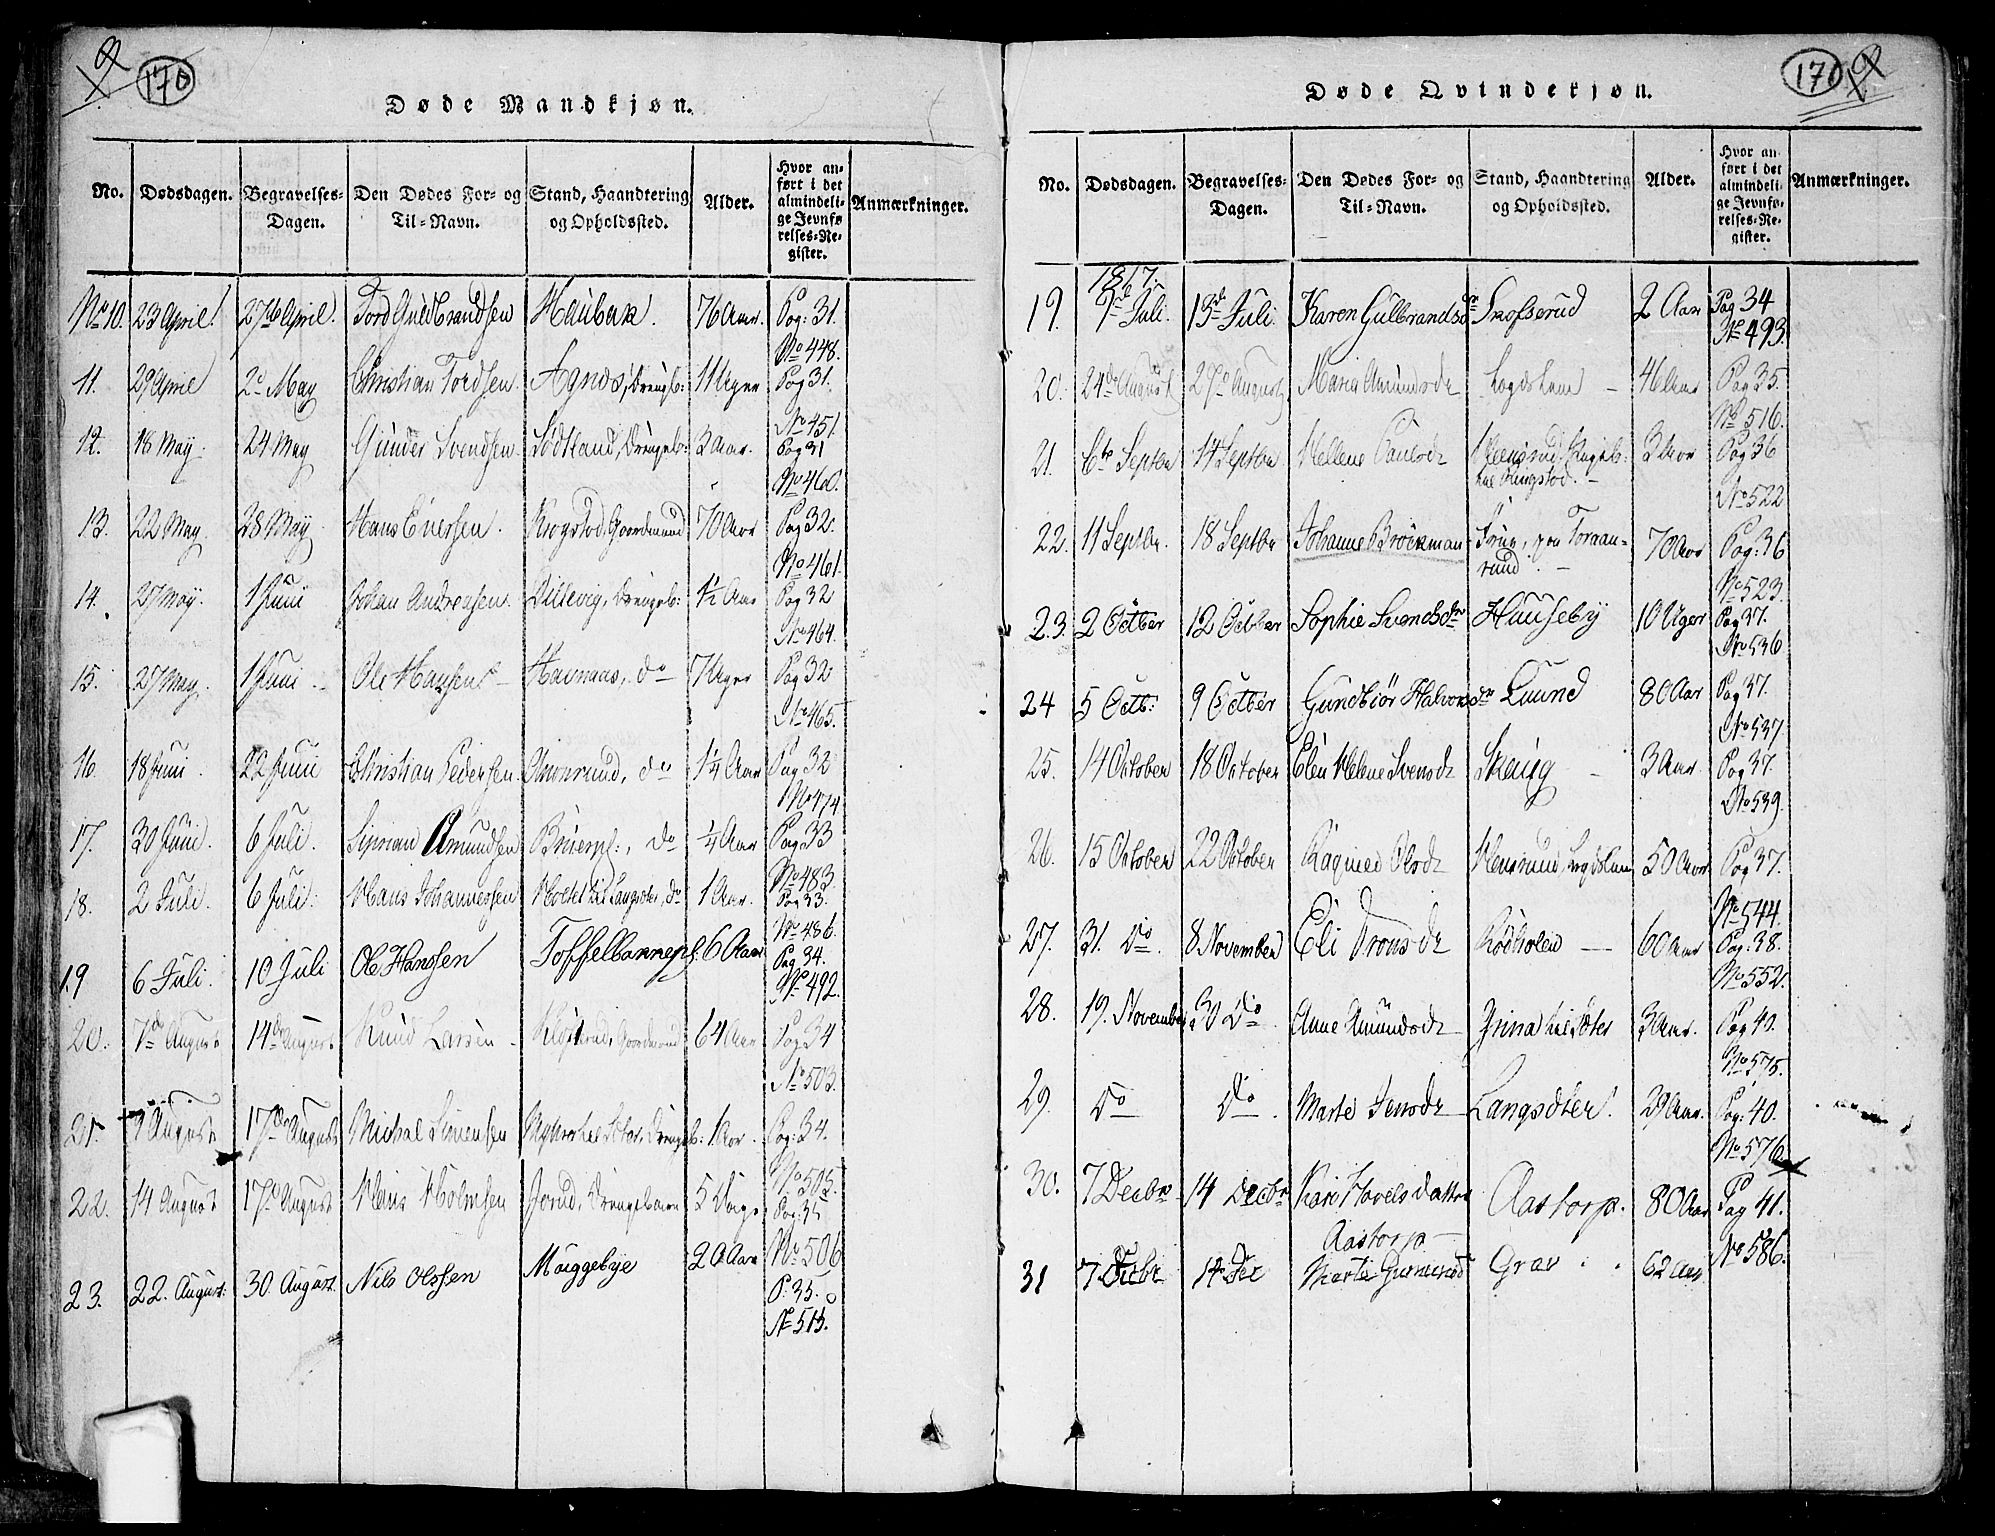 170
Døde Mandkjøn.
No. Dødsdagen. Begravelses-Dagen. Den Dødes For- og Til-Navn. Stand, Haandtering og Opholdssted. Alder. Hvor anført i det almindelige Jevnførelses-Register. Anmærkninger.
No 10. 23 April. 27de April. Tord Guldbrandsen Haubak. 76 Aar. Pag: 31. No 448.
11. 29 April 2d May Christian Tordsen Agnæs, Drengeb: 11 Uger Pag 31. No 451.
12. 18 May. 24 May Gunder Svendsen Sødstand, Drengeb: 3 Aar. Pag 31 No 460.
13. 22 May 28 May Hans Eversen. Krogstod, Goordmand 70 Aar Pag 32. No 461.
14. 27 May. 1 Juni Johan Andreasen. Dillevig, Drengeb: 1½ Aar Pag 32 No 464.
15. 27 May. 1 Juni Ole Hansen Havnaas, do 7 Uger Pag 32 No 465.
16. 18 Juni. 22 Juni Christian Pedersen. do 1¼ Aar Pag 32 No 474
17. 30 Juni. 6 Juli. Siprian Amundsen do ¼ Aar Pag 33 No 483.
18. 2 Juli. 6 Juli. Hans Johannessen do 1 Aar. Pag 33. No 486.
19 6 Juli. 10 Juli Ole Hanssen Toffelbannepl. 6 Aar Pag 34. No 492.
20. 7de August 14de August Knud Larsen Goordmand 64 Aar Pag 34 No 503.
21. 9 August 17de August Michal Simensen Drengeb: 1 Aar. Pag: 34. No 505.
22. 14 August 17de August Hans Holmsen Jorud, Drengebarn 5 Dage Pag: 35 No 506
23. 22. August: 30. August. Nils Olssen Moiggebye 20 Aar P: 35. No 515.
171
Døde Qvindekjøn.
No. Dødsdagen. Begravelses-Dagen. Den Dødes For- og Til-Navn. Stand, Haandtering og Opholdssted. Alder. Hvor anført i det almindelige Jevnførelses-Register. Anmærkninger.
1817.
19. 9de Juli. 13de Juli. Karen Gulbrandsdr Skofserud 2 Aar Pag 34 No 493.
20. 24de August 27de August Maria Amundsdr Legdslem 46 Aar Pag 35. No 516.
21. 6te Septbr 14 Septbr Hellene Paulsdr 3 Aar Pag 36 No 522
22. 11 Septbr. 18 Septbr Johanne Brockman Frue, paa Toraanrund. 70 Aar Pag: 36 No 523.
23. 2 Octber 12 Octber Sophie Svendsdtr Hauseby 10 Uger Pag 37. No 536
24 5 Octb: 9 Octber Gundbiør Halvorsdr Luund 80 Aar Pag 37. No 537
25. 14 October 18 October Elen Helene Svensdr Skeug 3 Aar. Pag 37. No 539.
26. 15 October 22 October Ragnild Olsdr Legdslem 50 Aar Pag 37. No 544.
27. 31. Do. 8 November Eli Tronsdr Rødholen 60 Aar Pag: 38. No 552.
28. 19. November 30 Do. Anne Amundsdr 3 Aar. Pag 40. No 575.
29. Do Do. Marte Jensdr Langsæter. 29 Aar. Pag: 40. No 576.
30. 7 Decbr 14 Decbr Kari Hovelsdatter Aastorp. 80 Aar Pag 41. No 586.
Aastorp
31 7. Decbr 14. Dec Marte Gunerød Grav 62 Aar